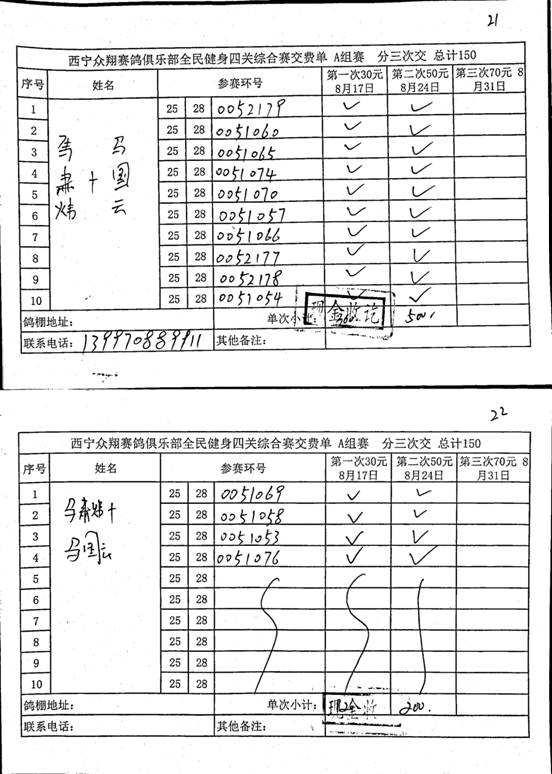 21
西宁众翔赛鸽俱乐部全民健身四关综合赛交费单 A组赛 分三次交 总计150
序号 姓名 参赛环号 第一次30元 8月17日 第二次50元 8月24日 第三次70元 8月31日
1 25 28 0052179 ✓ ✓
2 25 28 0051060 ✓ ✓
3 25 28 0051065 ✓ ✓
4 25 28 0051074 ✓ ✓
5 25 28 0051070 ✓ ✓
6 25 28 0051057 ✓ ✓
7 25 28 0051066 ✓ ✓
8 25 28 0052177 ✓ ✓
9 25 28 0052178 ✓ ✓
10 25 28 0051054 ✓ ✓
马肃炜十马国云
鸽棚地址: 单次小计: 现金收讫 500.
联系电话: 13997088991 其他备注:
22
西宁众翔赛鸽俱乐部全民健身四关综合赛交费单 A组赛 分三次交 总计150
序号 姓名 参赛环号 第一次30元 8月17日 第二次50元 8月24日 第三次70元 8月31日
1 25 28 0051069 ✓ ✓
2 25 28 0051058 ✓ ✓
3 25 28 0051053 ✓ ✓
4 25 28 0051076 ✓ ✓
5 25 28
6 25 28
7 25 28
8 25 28
9 25 28
10 25 28
马肃炜十
马国云
鸽棚地址: 单次小计: 现金收 200.
联系电话: 其他备注: